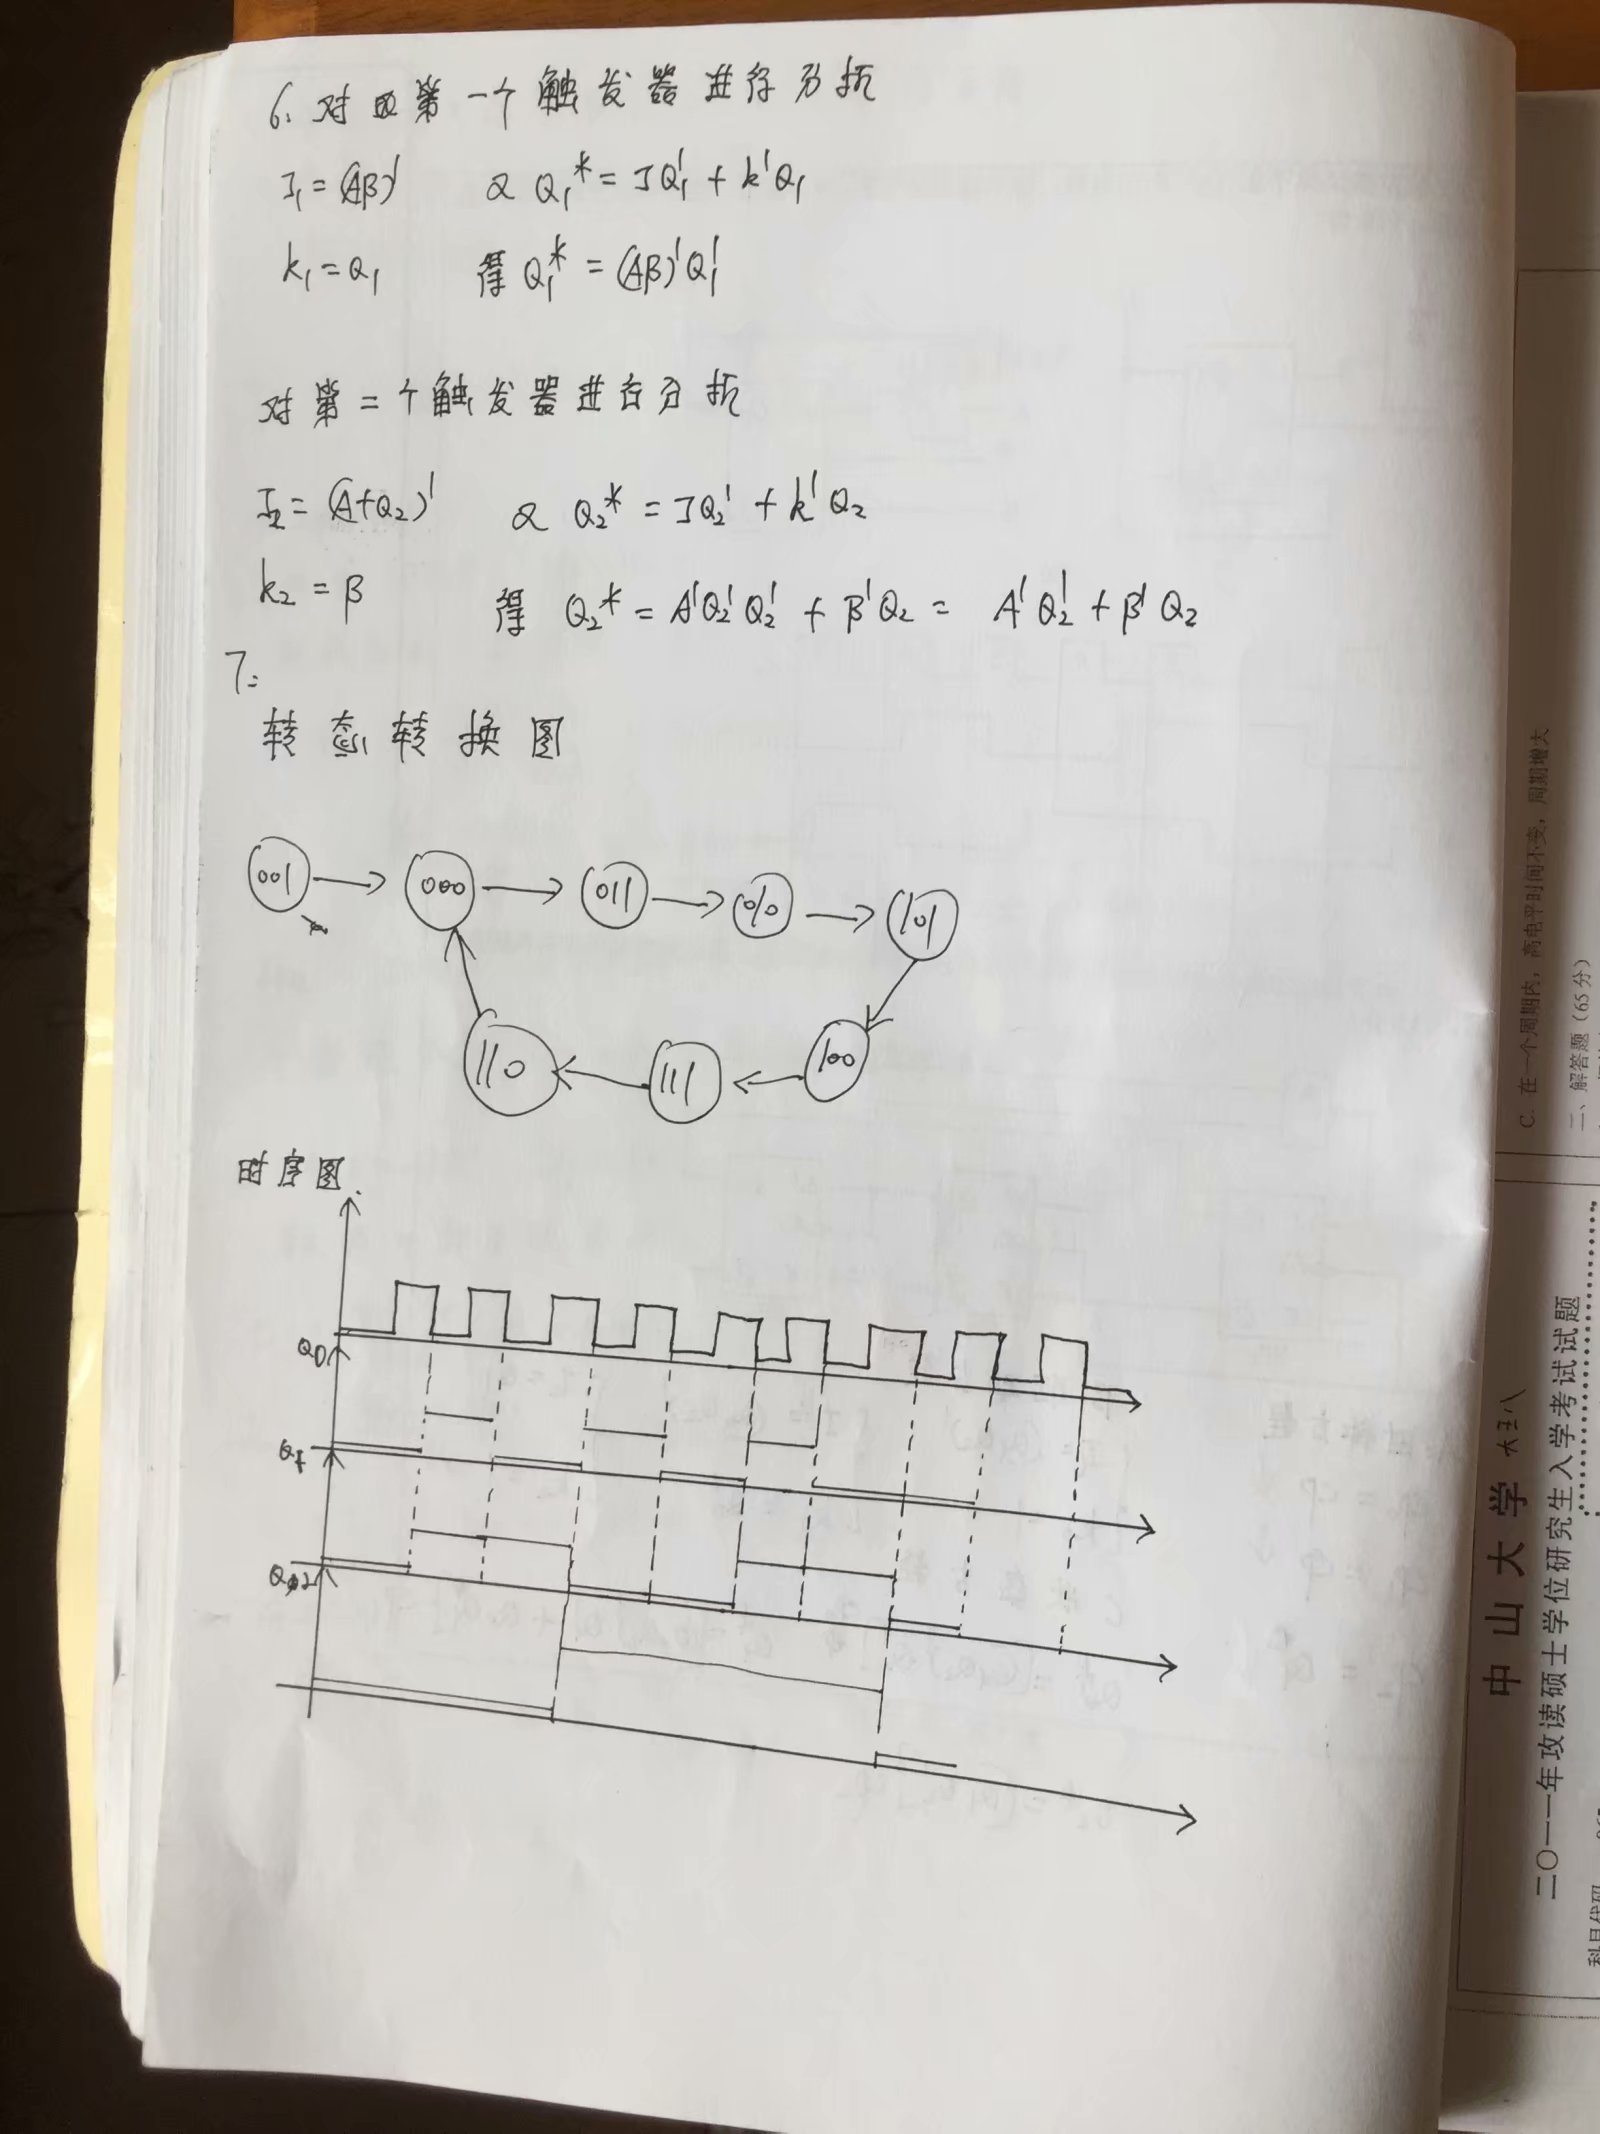 6. 对第一个触发器进行分析
J₁=(AB)' 又 Q₁*=JQ₁'+k'Q₁
k₁=Q₁ 得 Q₁*=(AB)'Q₁'
对第二个触发器进行分析
J₂=(A+Q₂)' 又 Q₂*=JQ₂'+k'Q₂
k₂=B 得 Q₂*=A'Q₂'Q₂'+B'Q₂=A'Q₂'+B'Q₂
7:
转态转换图
001 000 011 010 101
110 111 100
时序图.
Q0
Q1
Q2
C. 在一个周期内，高电平时间不变，周期增大
二、解答题（65分）
中山大学
二〇一一年攻读硕士学位研究生入学考试试题
科目代码